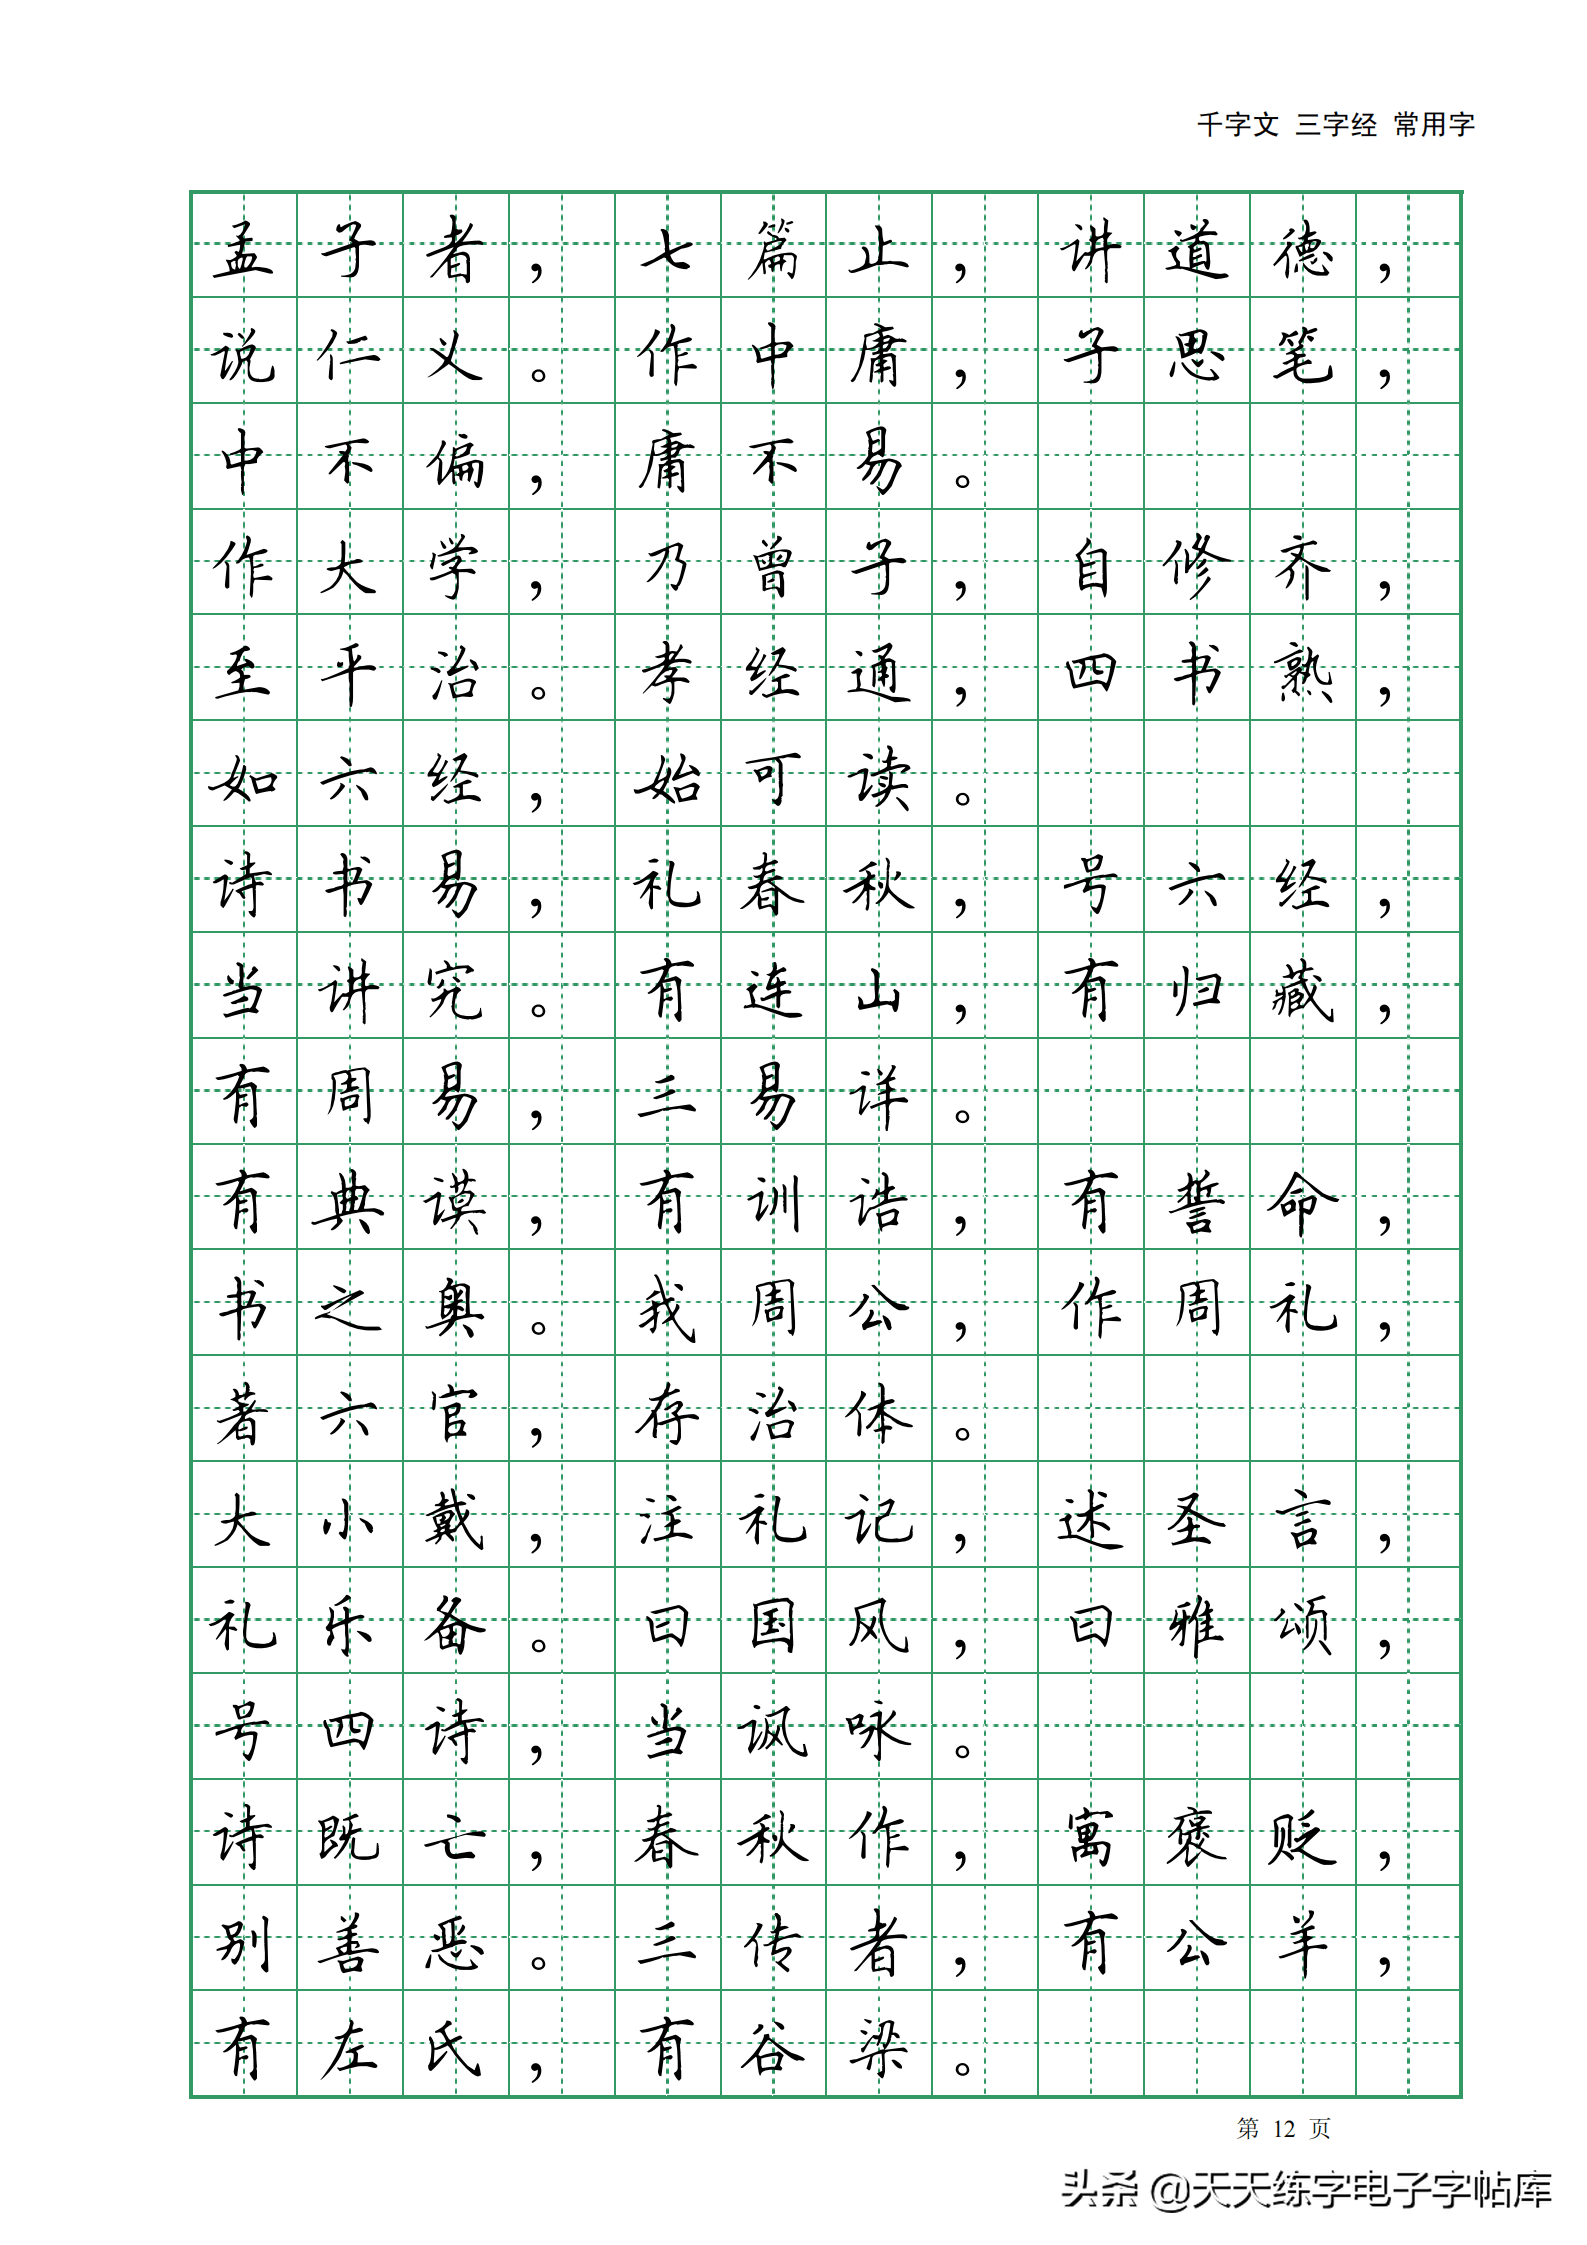 千字文 三字经 常用字
孟子者，七篇止，讲道德，
说仁义。作中庸，子思笔，
中不偏，庸不易。
作大学，乃曾子，自修齐，
至平治。孝经通，四书熟，
如六经，始可读。
诗书易，礼春秋，号六经，
当讲究。有连山，有归藏，
有周易，三易详。
有典谟，有训诰，有誓命，
书之奥。我周公，作周礼，
著六官，存治体。
大小戴，注礼记，述圣言，
礼乐备。曰国风，曰雅颂，
号四诗，当讽咏。
诗既亡，春秋作，寓褒贬，
别善恶。三传者，有公羊，
有左氏，有谷梁。
第 12 页
头条 @天天练字电子字帖库